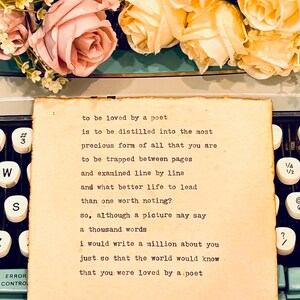 to be loved by a poet
is to be distilled into the most
precious form of all that you are
to be trapped between pages
and examined line by line
and what better life to lead
than one worth noting?
so, although a picture may say
a thousand words
i would write a million about you
just so that the world would know
that you were loved by a poet
#
3
W
S
X
?
/
ERROR
CONTROL